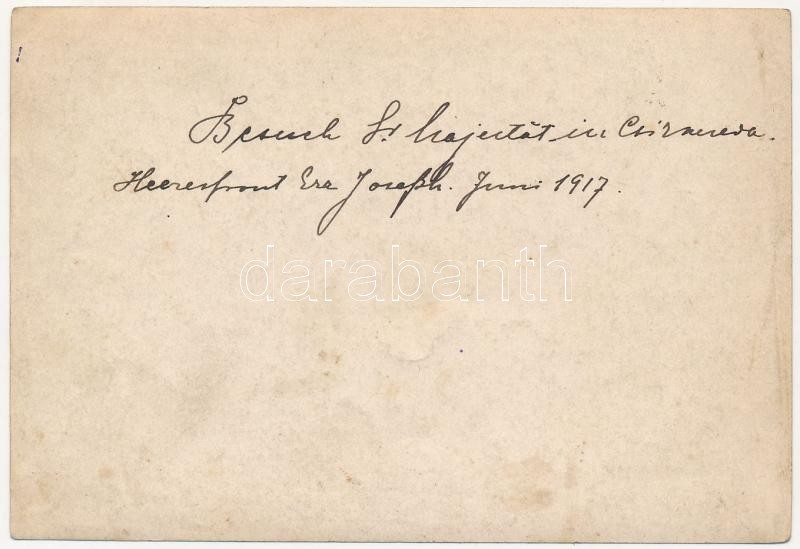 Besuch Sr Majestät in Csizszereda.
Heeresfront Erz Joseph. Juni 1917.
darabanth